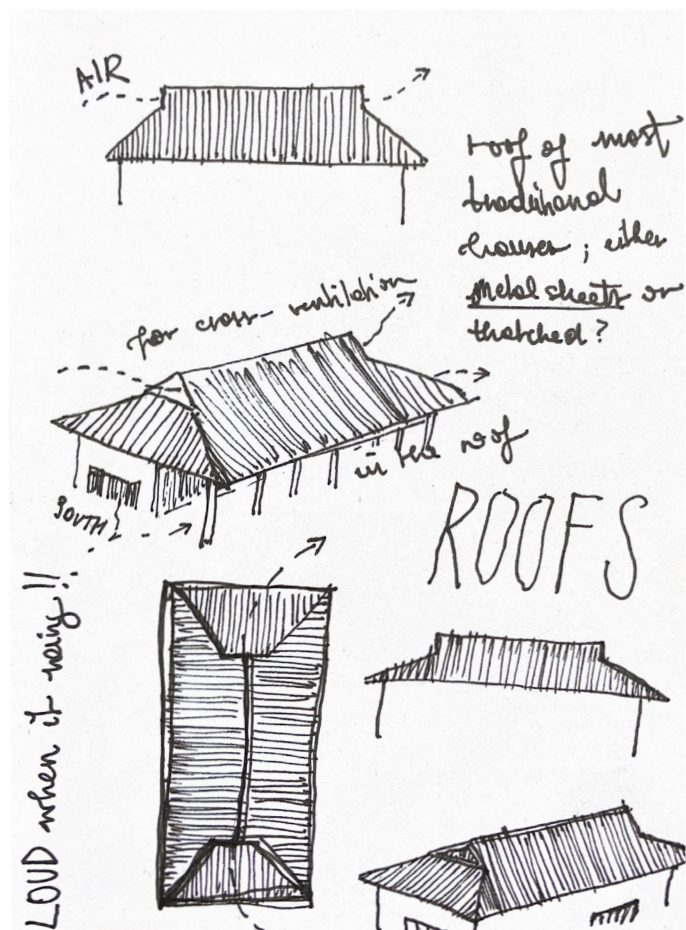 AIR
roof of most
traditional
houses ; either
metal sheets or
thatched ?
for cross-ventilation
in the roof
SOUTH
ROOFS
LOUD when it rains!!